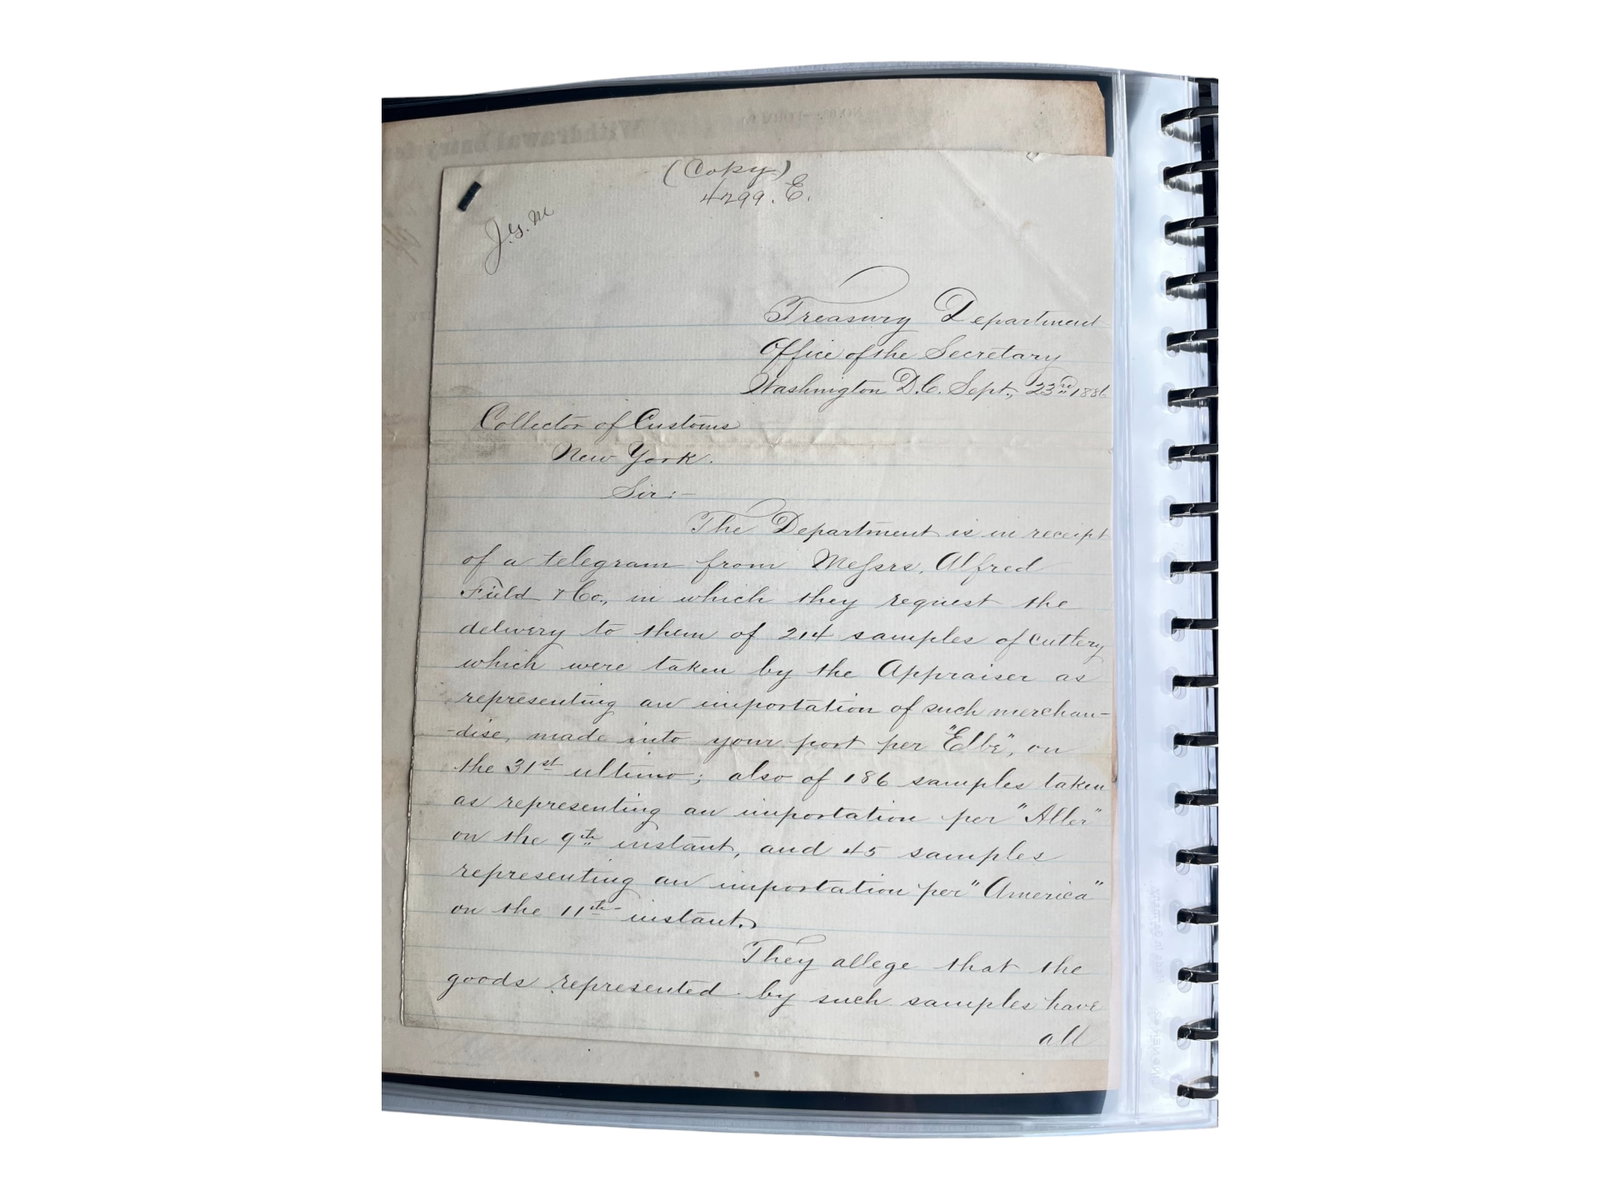 (Copy)
4299. E.
J.G.M
Treasury Department
Office of the Secretary
Washington D.C. Sept., 23rd 1886
Collector of Customs
New York.
Sir:-
The Department is in receipt
of a telegram from Messrs. Alfred
Field & Co., in which they request the
delivery to them of 214 samples of cutlery
which were taken by the Appraiser as
representing an importation of such merchan-
-dise, made into your port per "Elbe", on
the 31st ultimo; also of 186 samples taken
as representing an importation per "Aller"
on the 9th instant, and 45 samples
representing an importation per "America"
on the 11th instant.
They allege that the
goods represented by such samples have
all